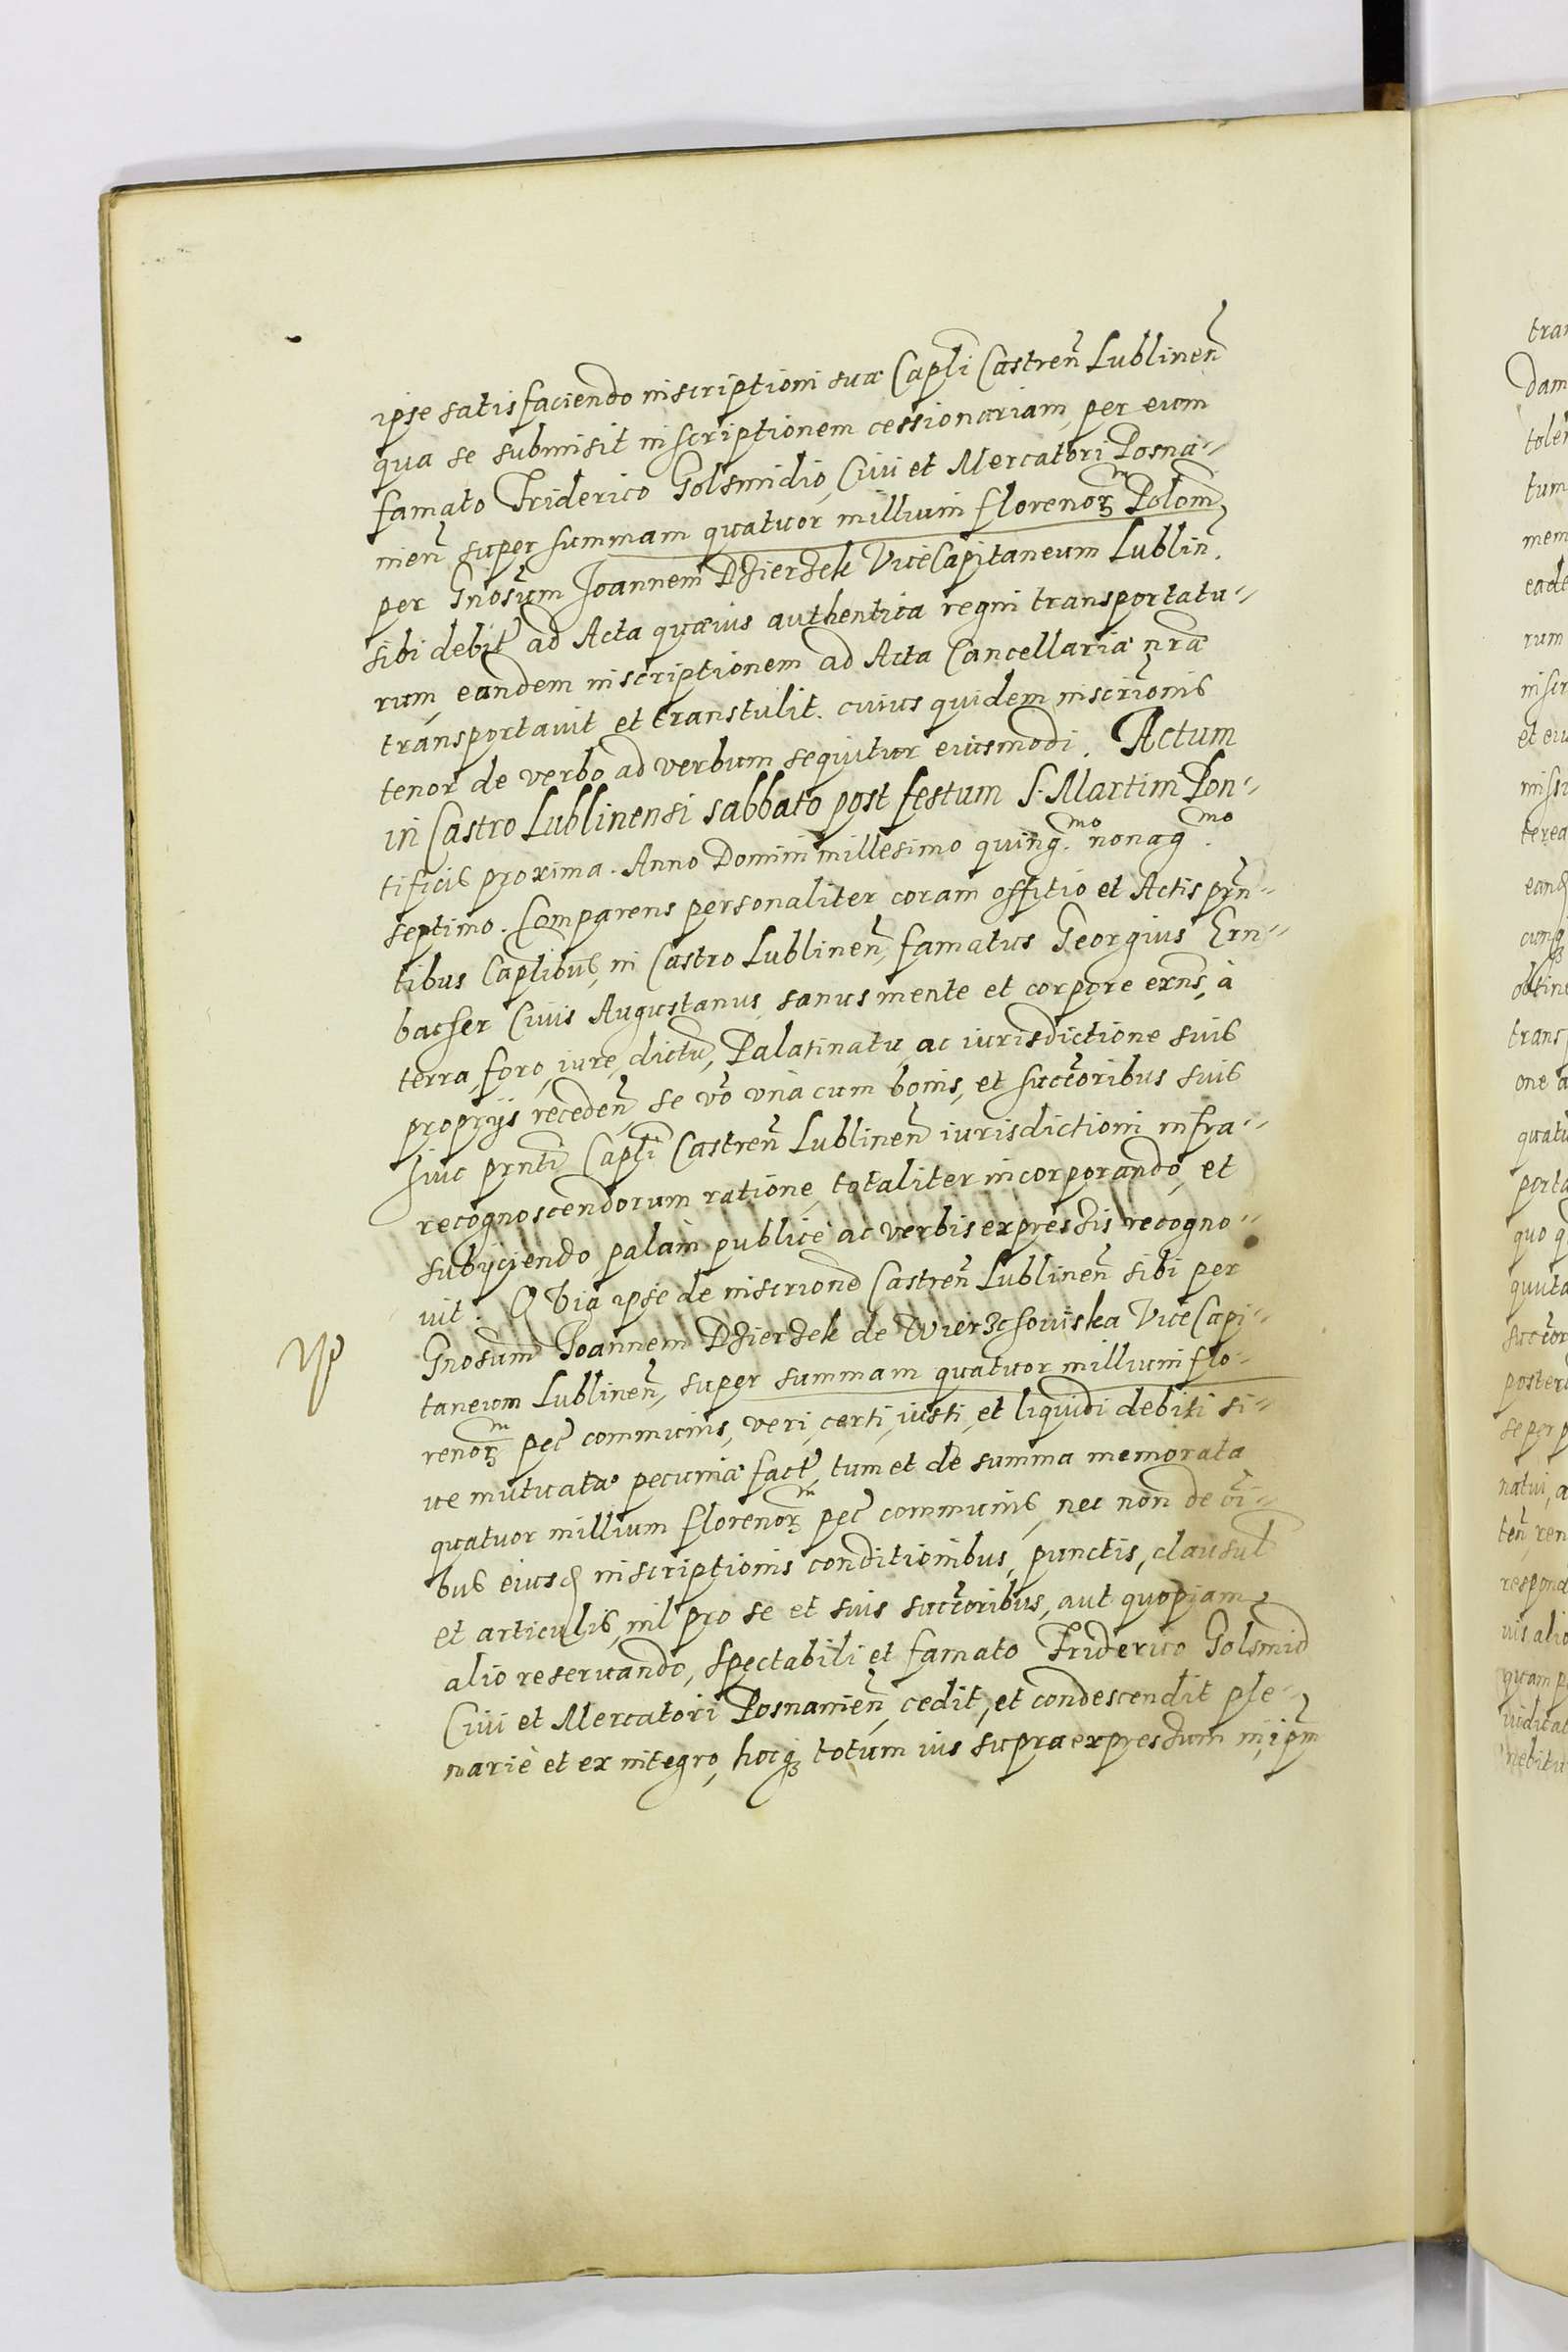 ipse satisfaciendo inscriptioni suæ Capłi Castreñ Lublineñ
qua se submisit inscriptionem cessionariam, per eum
famato Friderico Golsmidio, Ciui et Mercatori Posna=
nieñ super summam quatuor millium florenorꝫ Polom
per Gnosum Joannem Dzierzek ViceCapitaneum Lubliñ.
sibi debit ad Acta quæuis authentica regni transportatu=
rum, eandem inscriptionem ad Acta Cancellariæ nræ
transportauit et transtulit. cuius quidem inscrionis
tenor de verbo ad verbum sequitur eiusmodi. Actum
in Castro Lublinensi sabbato post festum S. Martini Pon=
tificis proxima. Anno Domini millesimo quing.mo nonag.mo
septimo. Comparens personaliter coram offitio et Actis prn=
tibus Caplibus, in Castro Lublineñ, famatus Georgius Ern=
bacher Ciuis Augustanus, sanus mente et corpore exns, à
terra, foro, iure, dictu, Palatinatu, ac iurisdictione suis
proprijs recedeñ, se vo vnà cum bonis, et succoribus suis
huic prnti Capłi Castreñ Lublineñ iurisdictioni infra=
recognoscendorum ratione, totaliter incorporando, et
subijciendo, palàm publicè ac verbis expressis recogno=
uit. Quia ipse de inscrione Castreñ Lublineñ sibi per
Gnosum Joannem Dzierzek de Wierzchowiska ViceCapi=
taneum Lublineñ, super summam quatuor millium flo=
renorꝫ pec communis, veri, certi, iusti, et liquidi debiti si=
ue mutuatæ pecuniæ fact, tum et de summa memorata
quatuor millium florenorꝫ pec communis, nec non de oi=
bus eiusd inscriptionis conditionibus, punctis, clausul
et articulis, nil pro se et suis succoribus, aut quopiam
alio reseruando, spectabili et famato Friderico Golsmid
Ciui et Mercatori Posnanieñ, cedit, et condescendit ple=
nariè et ex integro, hocqꝫ totum ius supraexpressum in ipm